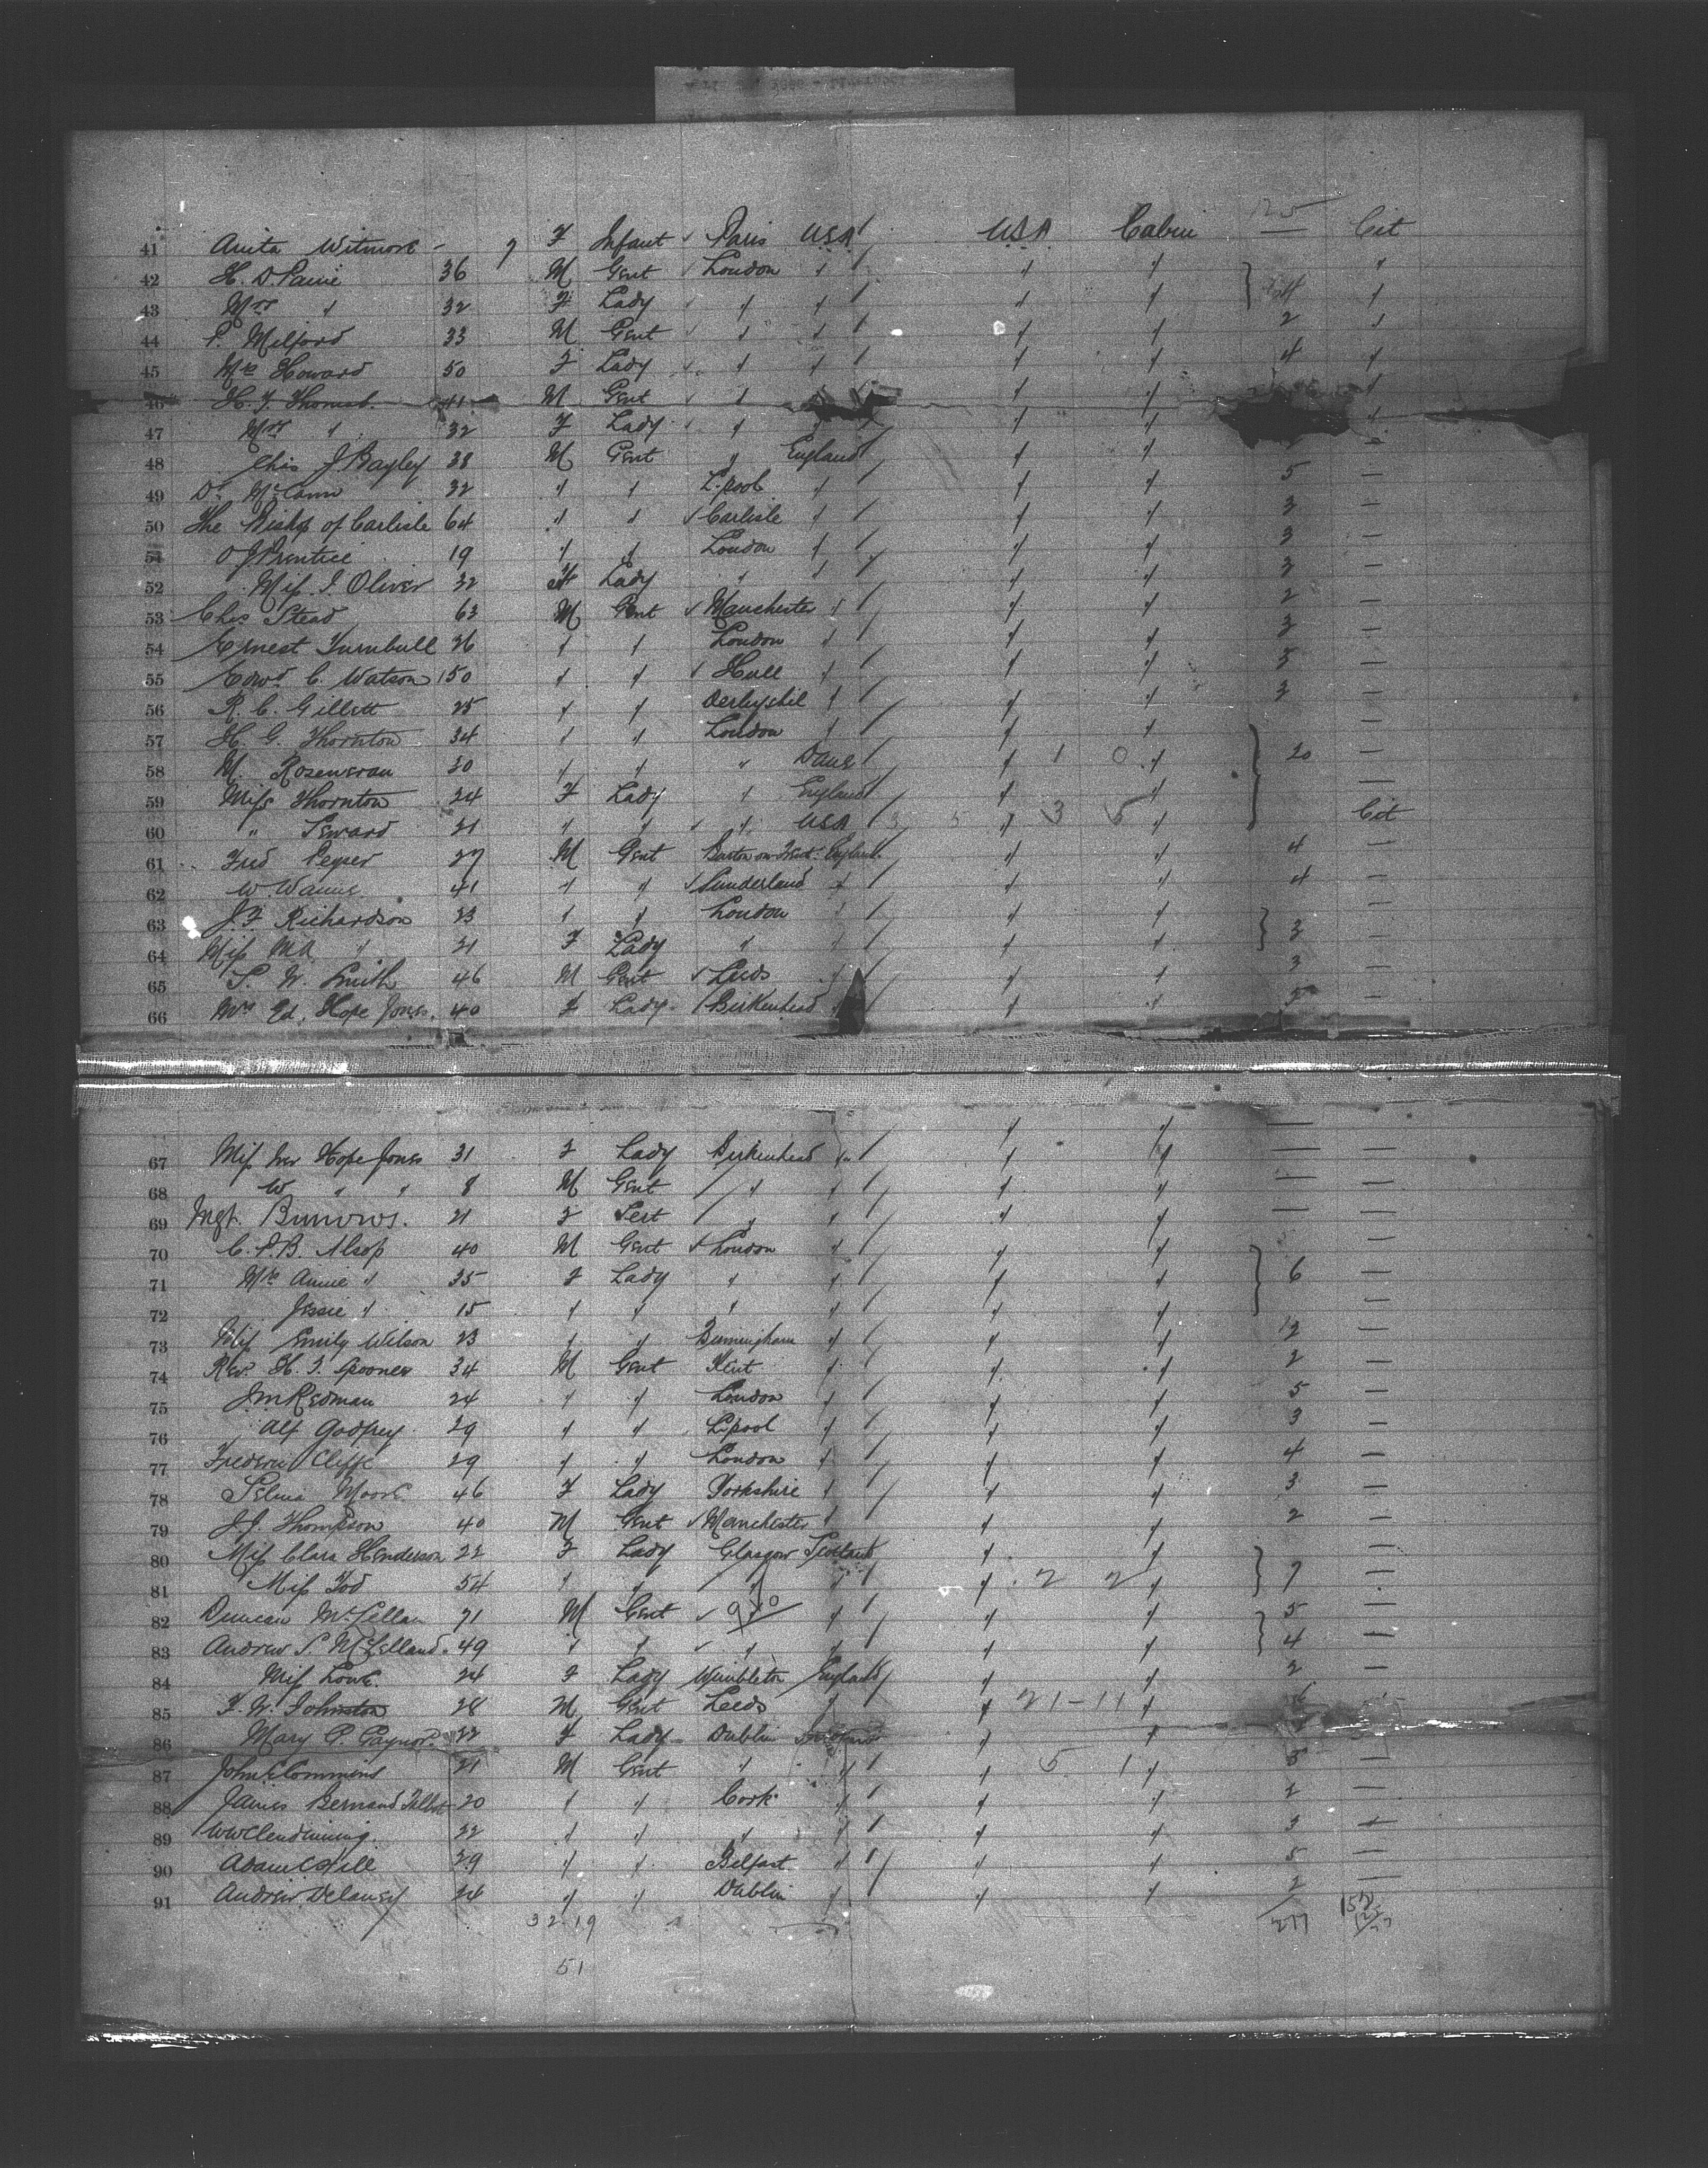 125
41 Anita Witmore - 7 F Infant ✓ Paris USA / USA Cabin — Cit
42 H. D. Paine 36 M Gent ✓ London " / " " "
43 Mrs " 32 F Lady ✓ " " / " " } 4 "
44 P. Milford 33 M Gent ✓ " " / " " 2 "
45 Mrs Howard 50 F Lady ✓ " " / " " 4 "
46 41 M Gent ✓ " " " "
47 Mrs " 32 F Lady ✓ " / " " "
48 Chs J. Bayley 38 M Gent " England / " " —
49 Dr McCann 32 " " L.pool " / " " 5 —
50 The Bishop of Carlisle 64 " " ✓ Carlisle " / " " 3 —
51 O J Prentice 19 " " London " / " " 3 —
52 Miss I. Oliver 32 F Lady " " / " " 3 —
53 Chas Stead 63 M Gent ✓ Manchester " / " " 2 —
54 Ernest Turnbull 26 " " London " / " " 3 —
55 Edwd C. Watson 50 " " ✓ Hull " / " " 5 —
56 R. C. Gillett 25 " " " / " " 3 —
57 H. G. Thornton 34 " " London " / " " —
58 M. 30 " " " Dane / " 1 0 " } 20 —
59 Miss Thornton 24 F Lady " England / " " —
60 " Seward 21 " " ✓ " USA / 3 5 " 3 5 " Cit
61 Fred Peyser 27 M Gent Burton on Trent England " " 4 —
62 W. 41 " " ✓ Sunderland " / " " 4 —
63 J. F. Richardson 23 " " London " / " " —
64 Miss M A " 21 F Lady " " / " " } 3 —
65 S. W. Smith 46 M Gent ✓ Leeds " / " " 3 —
66 Mrs Ed. Hope Jones. 40 F Lady / Birkenhead / " " 5 —
" " —
67 Miss Hope Jones 31 F Lady Birkenhead " / " " — —
68 W " " 8 M Gent / " " / " " — —
69 Mgt. Burrows. 21 F Sert / " " / " " — —
70 C. P. B. Alsop 40 M Gent ✓ London " / " " —
71 Mrs Annie " 35 F Lady " " / " " } 6 —
72 Jessie " 15 " " " " / " " —
73 Miss Emily Wilson 23 " " Birmingham " / " " 12 —
74 Rev. H. T. Spooner 34 M Gent Kent " / " " 2 —
75 J M Redman 24 " " London " / " " 5 —
76 Alf Godfrey 29 " " L.pool " / " " 3 —
77 Frederic Cliffe 29 " " London " / " " 4 —
78 Selina Moore 46 F Lady Yorkshire " / " " 3 —
79 J. J. Thompson 40 M Gent ✓ Manchester " / " " 2 —
80 Miss Clara Henderson 22 F Lady Glasgow Scotland " " —
81 Miss Tod 54 " " " " / " 2 2 " } 7 —
82 Duncan McLellan 71 M Gent ✓ " / " " 5 —
83 Andrew S. McLelland. 49 " " ✓ " " / " " } 4 —
84 Miss Lowe. 24 F Lady Wimbleton England / " " 2 —
85 F. W. Johnston 28 M Gent Leeds " " 21 - 11 "
86 Mary P. Gaynor. 22 F Lady Dublin " " —
87 John 21 M Gent " " / " 5 1 " 5 —
88 James Bernard Talbot 20 " " Cork " / " " 2 —
89 W W Clendinning. 22 " " " " / " " 3 —
90 Adam C Hill 29 " " Belfast " / " " 5 —
91 Andrew Delaney 24 " " Dublin " / " " 2 —
32 19 277 152
125
51